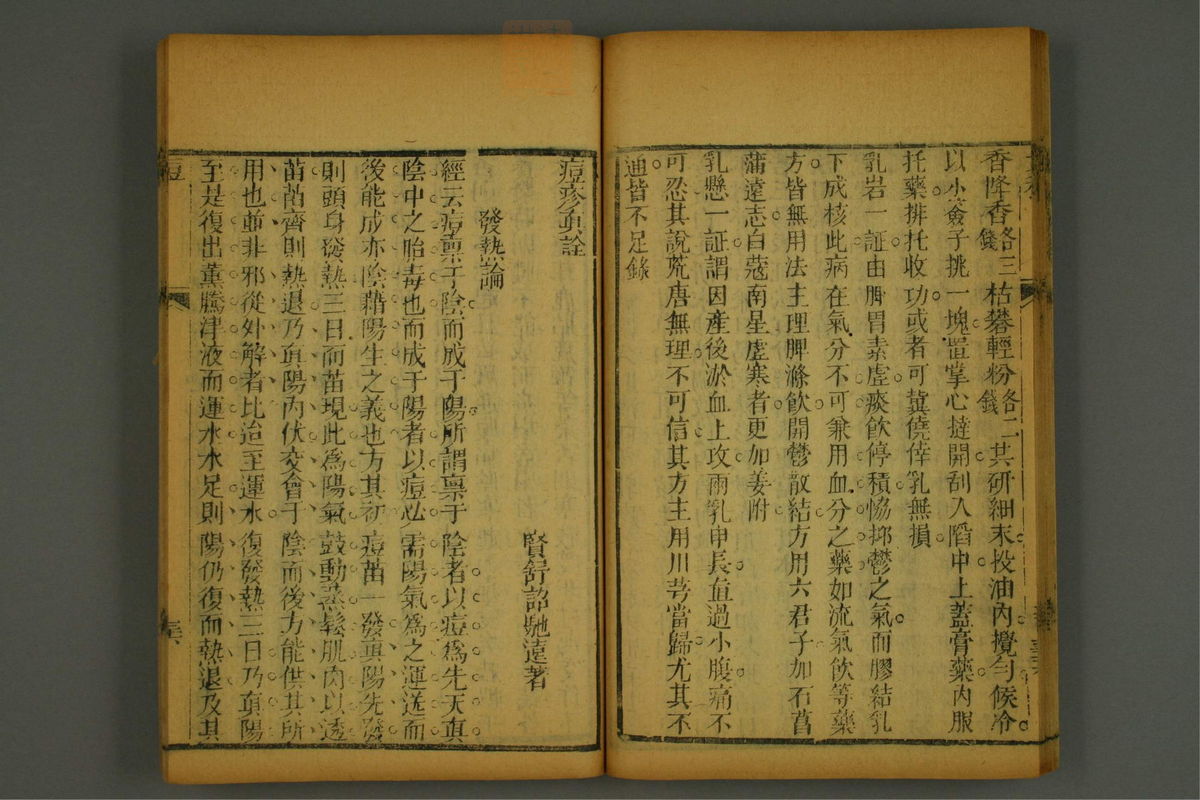 香降香各三錢枯礬輕粉各二錢共研細末投油內攪勻候冷
以小簽子挑一塊置掌心撻開刮入䧟中上蓋膏藥內服
托藥排托收功或者可冀僥倖乳無損
乳岩一証由脾胃素虛痰飲停積協抑鬱之氣而膠結乳
下成核此病在氣分不可兼用血分之藥如流氣飲等藥
方皆無用法主理脾滌飲開鬱散結方用六君子加石菖
蒲遠志白蔻南星虛寒者更加姜附
乳懸一証謂因產後淤血上攻兩乳申長直過小腹痛不
可忍其說荒唐無理不可信其方主用川芎當歸尤其不
通皆不足錄
痘疹真詮
賢舒詔馳遠著
發熱論
經云痘禀于陰而成于陽所謂禀于陰者以痘為先天真
陰中之胎毒也而成于陽者以痘必需陽氣為之運送而
後能成亦陰藉陽生之義也方其初痘苗一發真陽先發
則頭身發熱三日而苗現此為陽氣鼓動蒸鬆肌肉以透
苗苗齊則熱退乃真陽內伏交會于陰而後方能供其所
用也並非邪從外解者比迨至運水復發熱三日乃真陽
至是復出薰騰津液而運水水足則陽仍復而熱退及其
痘